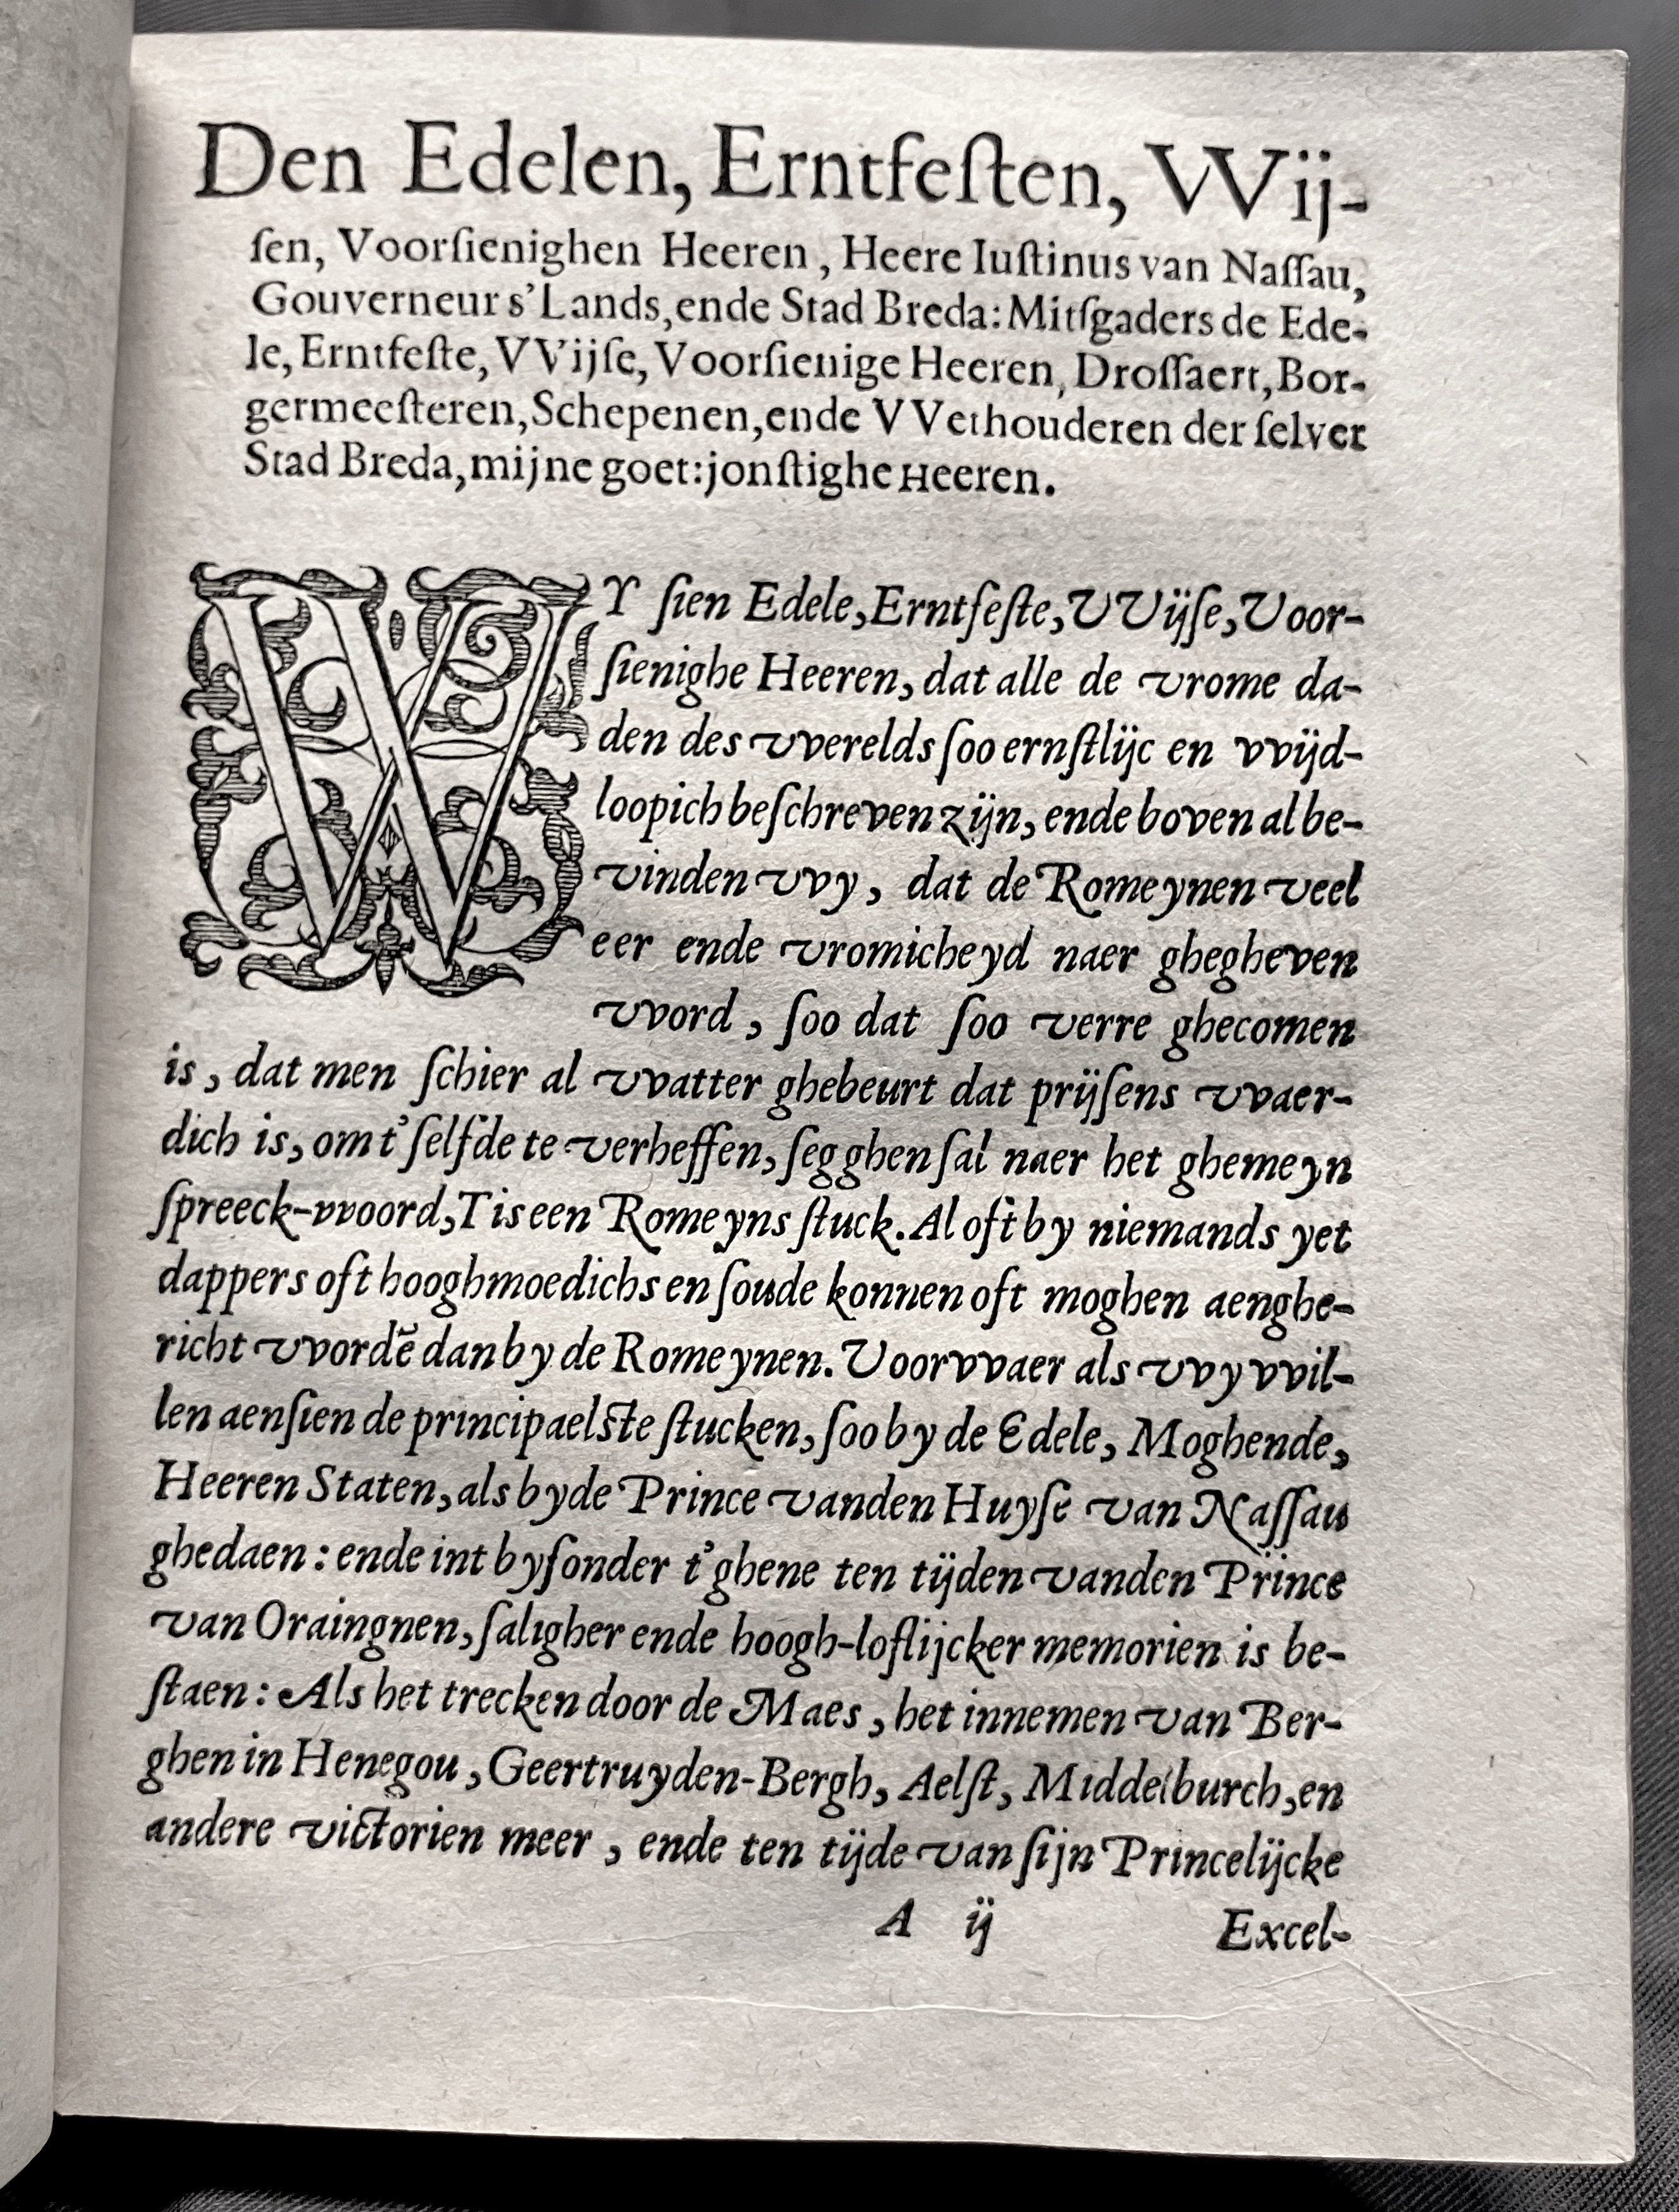 Den Edelen, Erntfeſten, VVij-
ſen, Voorſienighen Heeren, Heere Iuſtinus van Naſſau,
Gouverneur s'Lands, ende Stad Breda: Mitſgaders de Ede-
le, Erntfeſte, VVijſe, Voorſienige Heeren, Droſſaert, Bor-
germeeſteren, Schepenen, ende VVethouderen der ſelver
Stad Breda, mijne goet:jonſtighe Heeren.
WY ſien Edele, Erntfeſte, VVijſe, Voor-
ſienighe Heeren, dat alle de vrome da-
den des vverelds ſoo ernſtlijc en vvijd-
loopich beſchreven zijn, ende boven al be-
vinden vvy, dat de Romeynen veel
eer ende vromicheyd naer ghegheven
vvord, ſoo dat ſoo verre ghecomen
is, dat men ſchier al vvatter ghebeurt dat prijſens vvaer-
dich is, om t'ſelfde te verheffen, ſegghen ſal naer het ghemeyn
ſpreeck-vvoord, T is een Romeyns ſtuck. Al oft by niemands yet
dappers oft hooghmoedichs en ſoude konnen oft moghen aenghe-
richt vvordẽ dan by de Romeynen. Voorvvaer als vvy vvil-
len aenſien de principaelſte ſtucken, ſoo by de Edele, Moghende,
Heeren Staten, als byde Prince vanden Huyſe van Naſſau
ghedaen: ende int byſonder t'ghene ten tijden vanden Prince
van Oraingnen, ſaligher ende hoogh-loflijcker memorien is be-
ſtaen: Als het trecken door de Maes, het innemen van Ber-
ghen in Henegou, Geertruyden-Bergh, Aelſt, Middelburch, en
andere victorien meer, ende ten tijde van ſijn Princelijcke
A ij Excel-